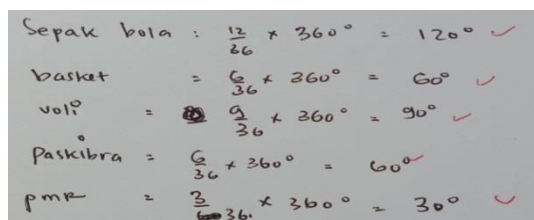 Sepak bola : 12/36 × 360° = 120° ✓
basket = 6/36 × 360° = 60° ✓
voli = 9/36 × 360° = 90° ✓
Paskibra = 6/36 × 360° = 60° ✓
PMR = 3/36 × 360° = 30° ✓